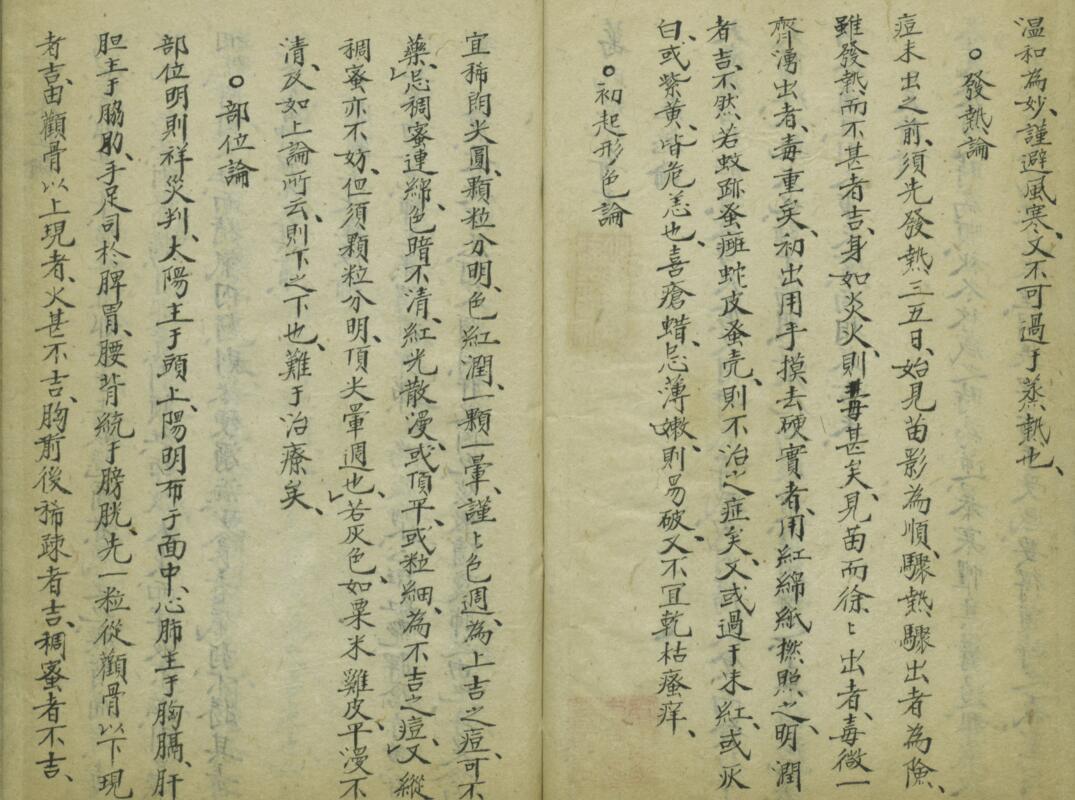 温和為妙、謹避風寒、又不可過于蒸熱也、
○發熱論
痘未出之前、須先發熱三五日、始見苗影為順、驟熱驟出者為險、
雖發熱而不甚者吉、身如炎火則毒甚矣、見苗而徐〻出者、毒微一
齊湧出者、毒重矣、初出用手摸去硬實者、用紅綿紙撚照之明潤
者吉、不然若蚊跡蚤斑蛇皮蚤壳、則不治之症矣、又或過于朱紅、或灰
白、或紫黄、皆危恙也、喜瘡蜡、忌薄嫩、則易破、又不宜乾枯瘙痒、
○初起形色論
宜稀開尖圓、顆粒分明、色紅潤、一顆一暈、謹〻色週、為上吉之痘、可不
藥、忌稠蜜連綿、色暗不清、紅光散漫、或頂平、或粒細、為不吉之痘、又縱
稠蜜亦不妨、但須顆粒分明、頂尖暈週也、若灰色如粟米雞皮平漫不
清、及如上論所云、則下之下也、難于治療矣、
○部位論
部位明則祥災判、太陽主于頭上、陽明布于面中、心肺主于胸膈、肝
胆主于脇肋、手足司於脾胃、腰背統于膀胱、先一粒從顴骨以下現
者吉、由顴骨以上現者、火甚不吉、胸前後稀疎者吉、稠蜜者不吉、